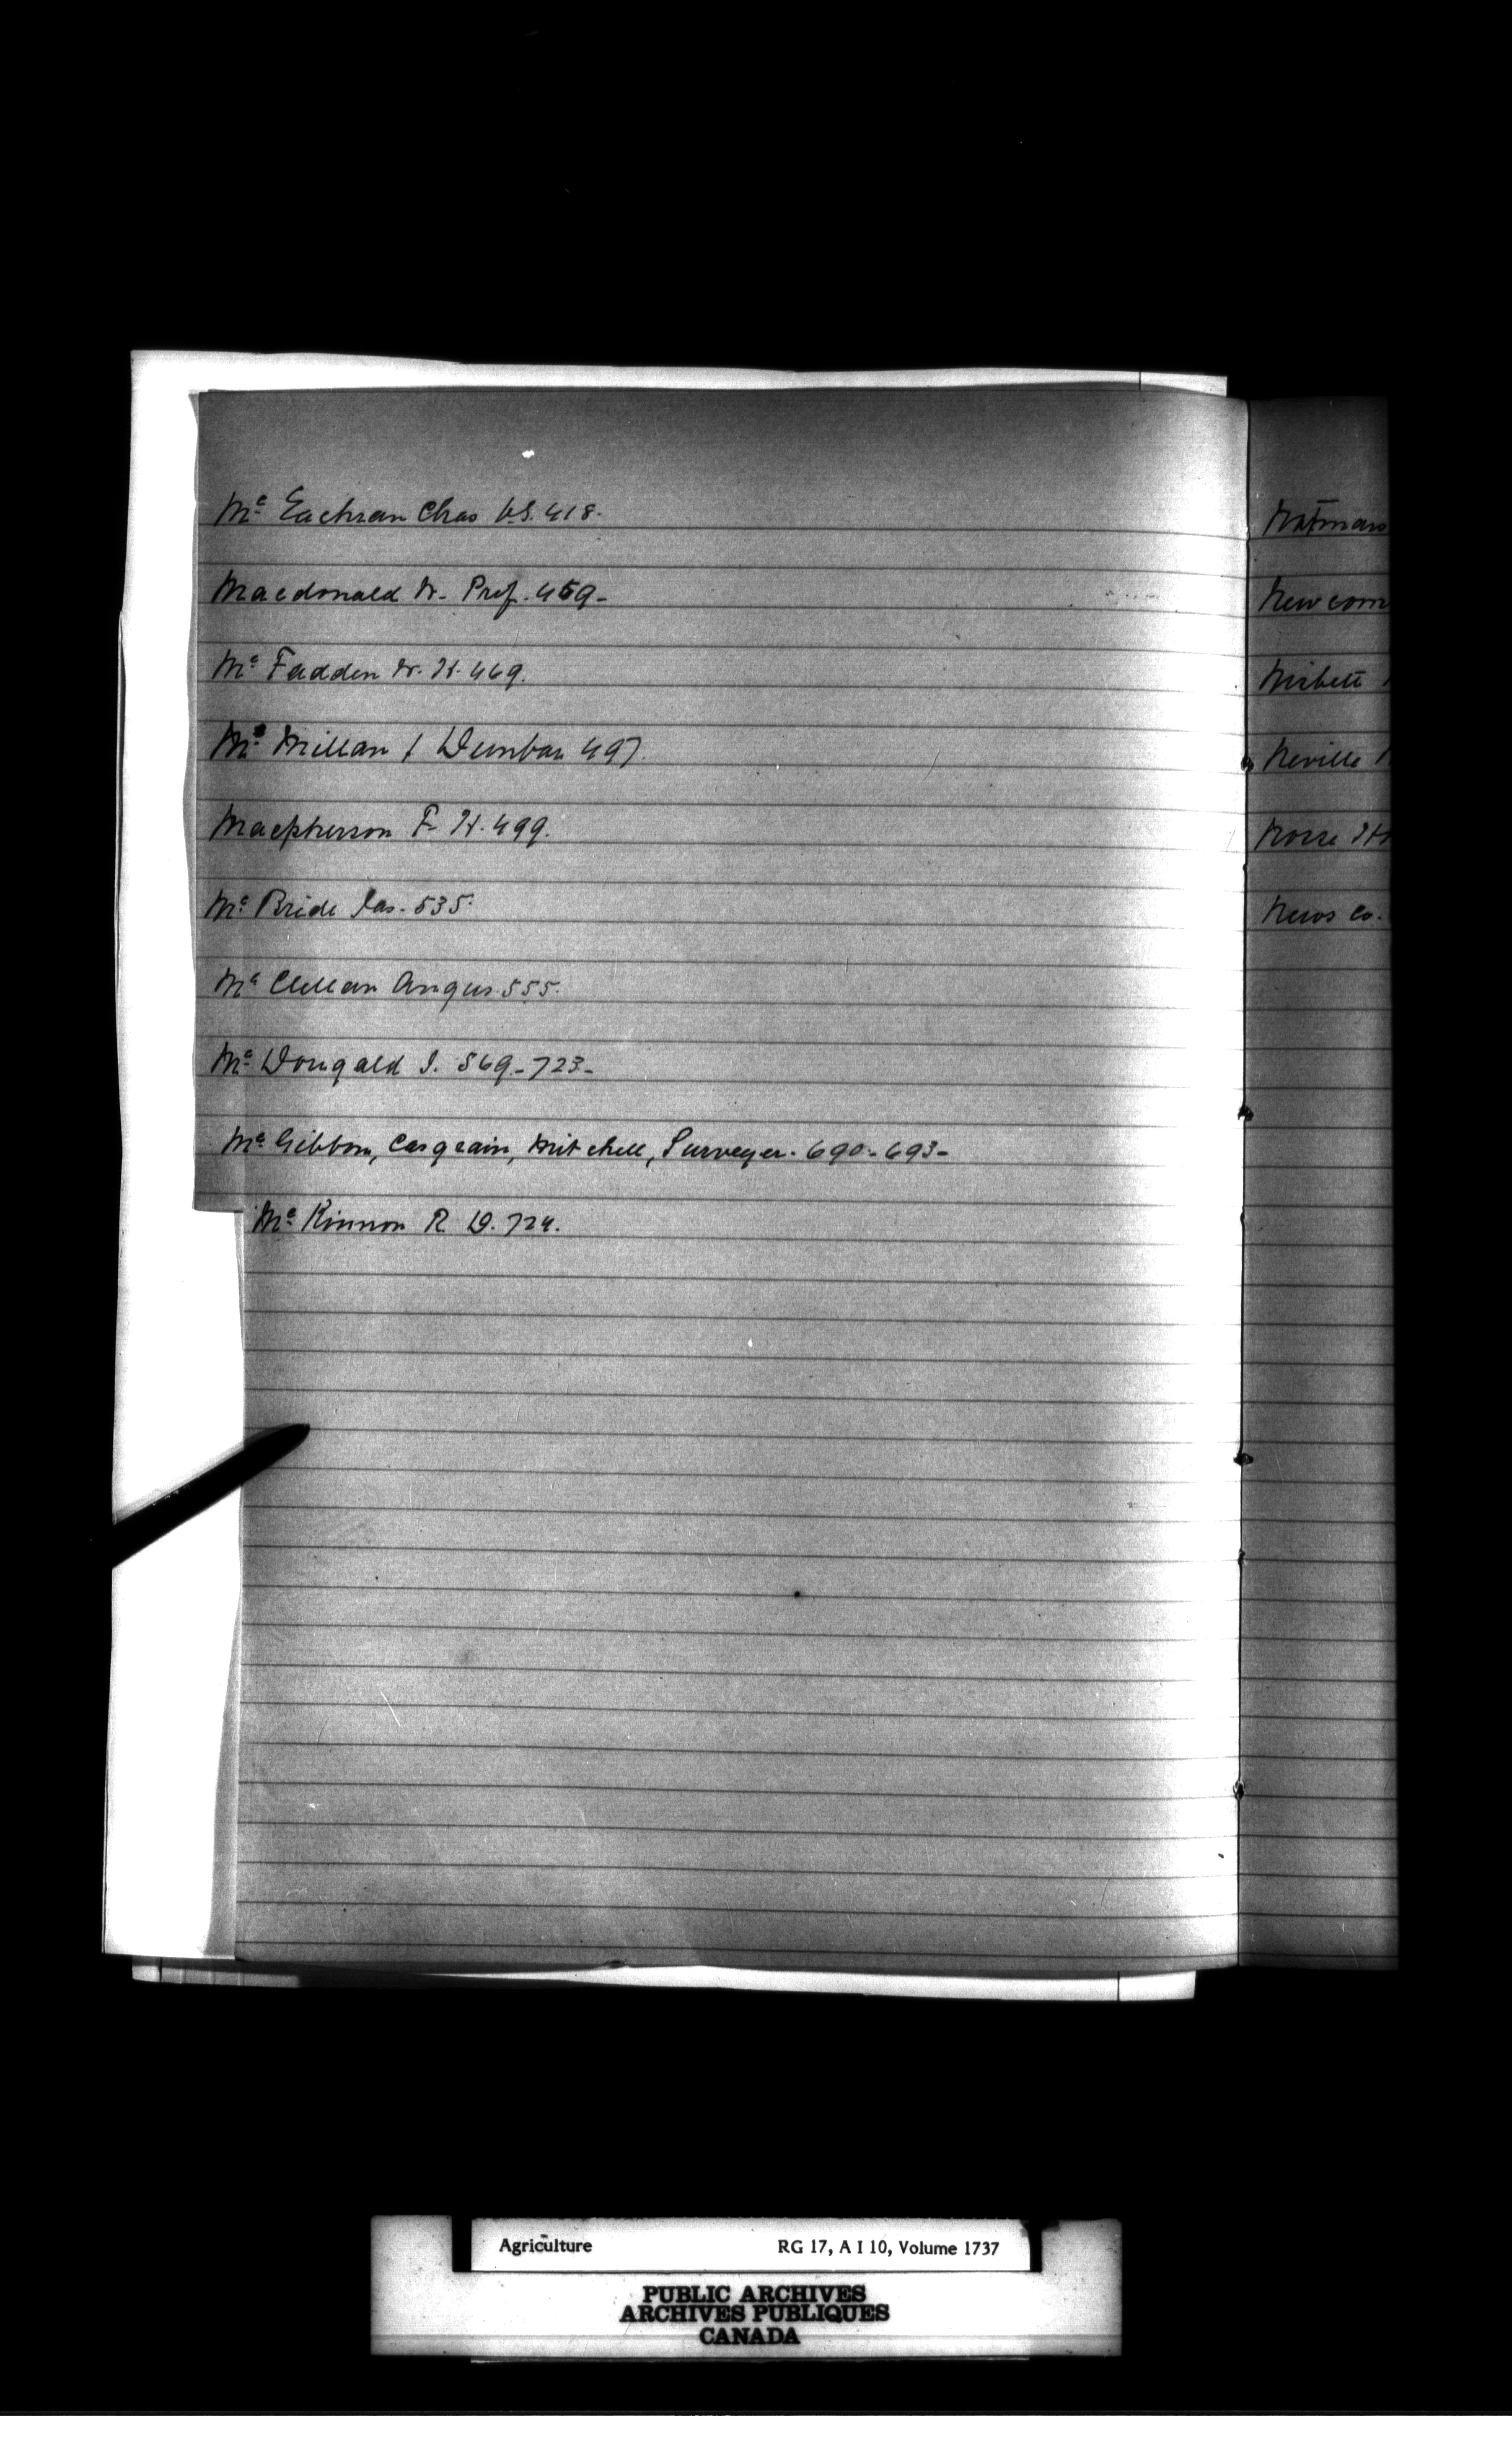 Mc Eachran Chas V.S. 418.
Macdonald W. Prof. 459-
Mc Fadden W. H. 469.
Mc Millan / Dunbar 497
Macpherson F. H. 499.
Mc Bride Jas. 535.
Mc Clellan Angus 555.
Mc Dougald J. 569-723-
Mc Gibbon, Casgrain, Mitchell, Surveyer. 690-693-
Mc Kinnon R D. 724.
Newcom
Nisbett
Neville
News Co.
Agriculture RG 17, A I 10, Volume 1737
PUBLIC ARCHIVES
ARCHIVES PUBLIQUES
CANADA